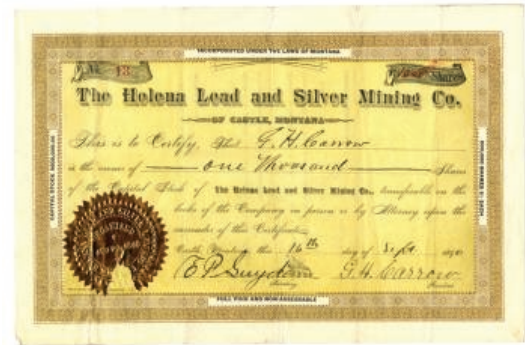 INCORPORATED UNDER THE LAWS OF MONTANA
No. 13
Shares
The Helena Lead and Silver Mining Co.
OF CASTLE, MONTANA
This is to Certify, That G. H. Carrow
is the owner of one Thousand Shares
of the Capital Stock of The Helena Lead and Silver Mining Co., transferable on the
books of the Company in person or by Attorney upon the
surrender of this Certificate
Castle Montana this 16th day of Sept.
E. P. Suydam G. H. Carrow
FULL PAID AND NON-ASSESSABLE